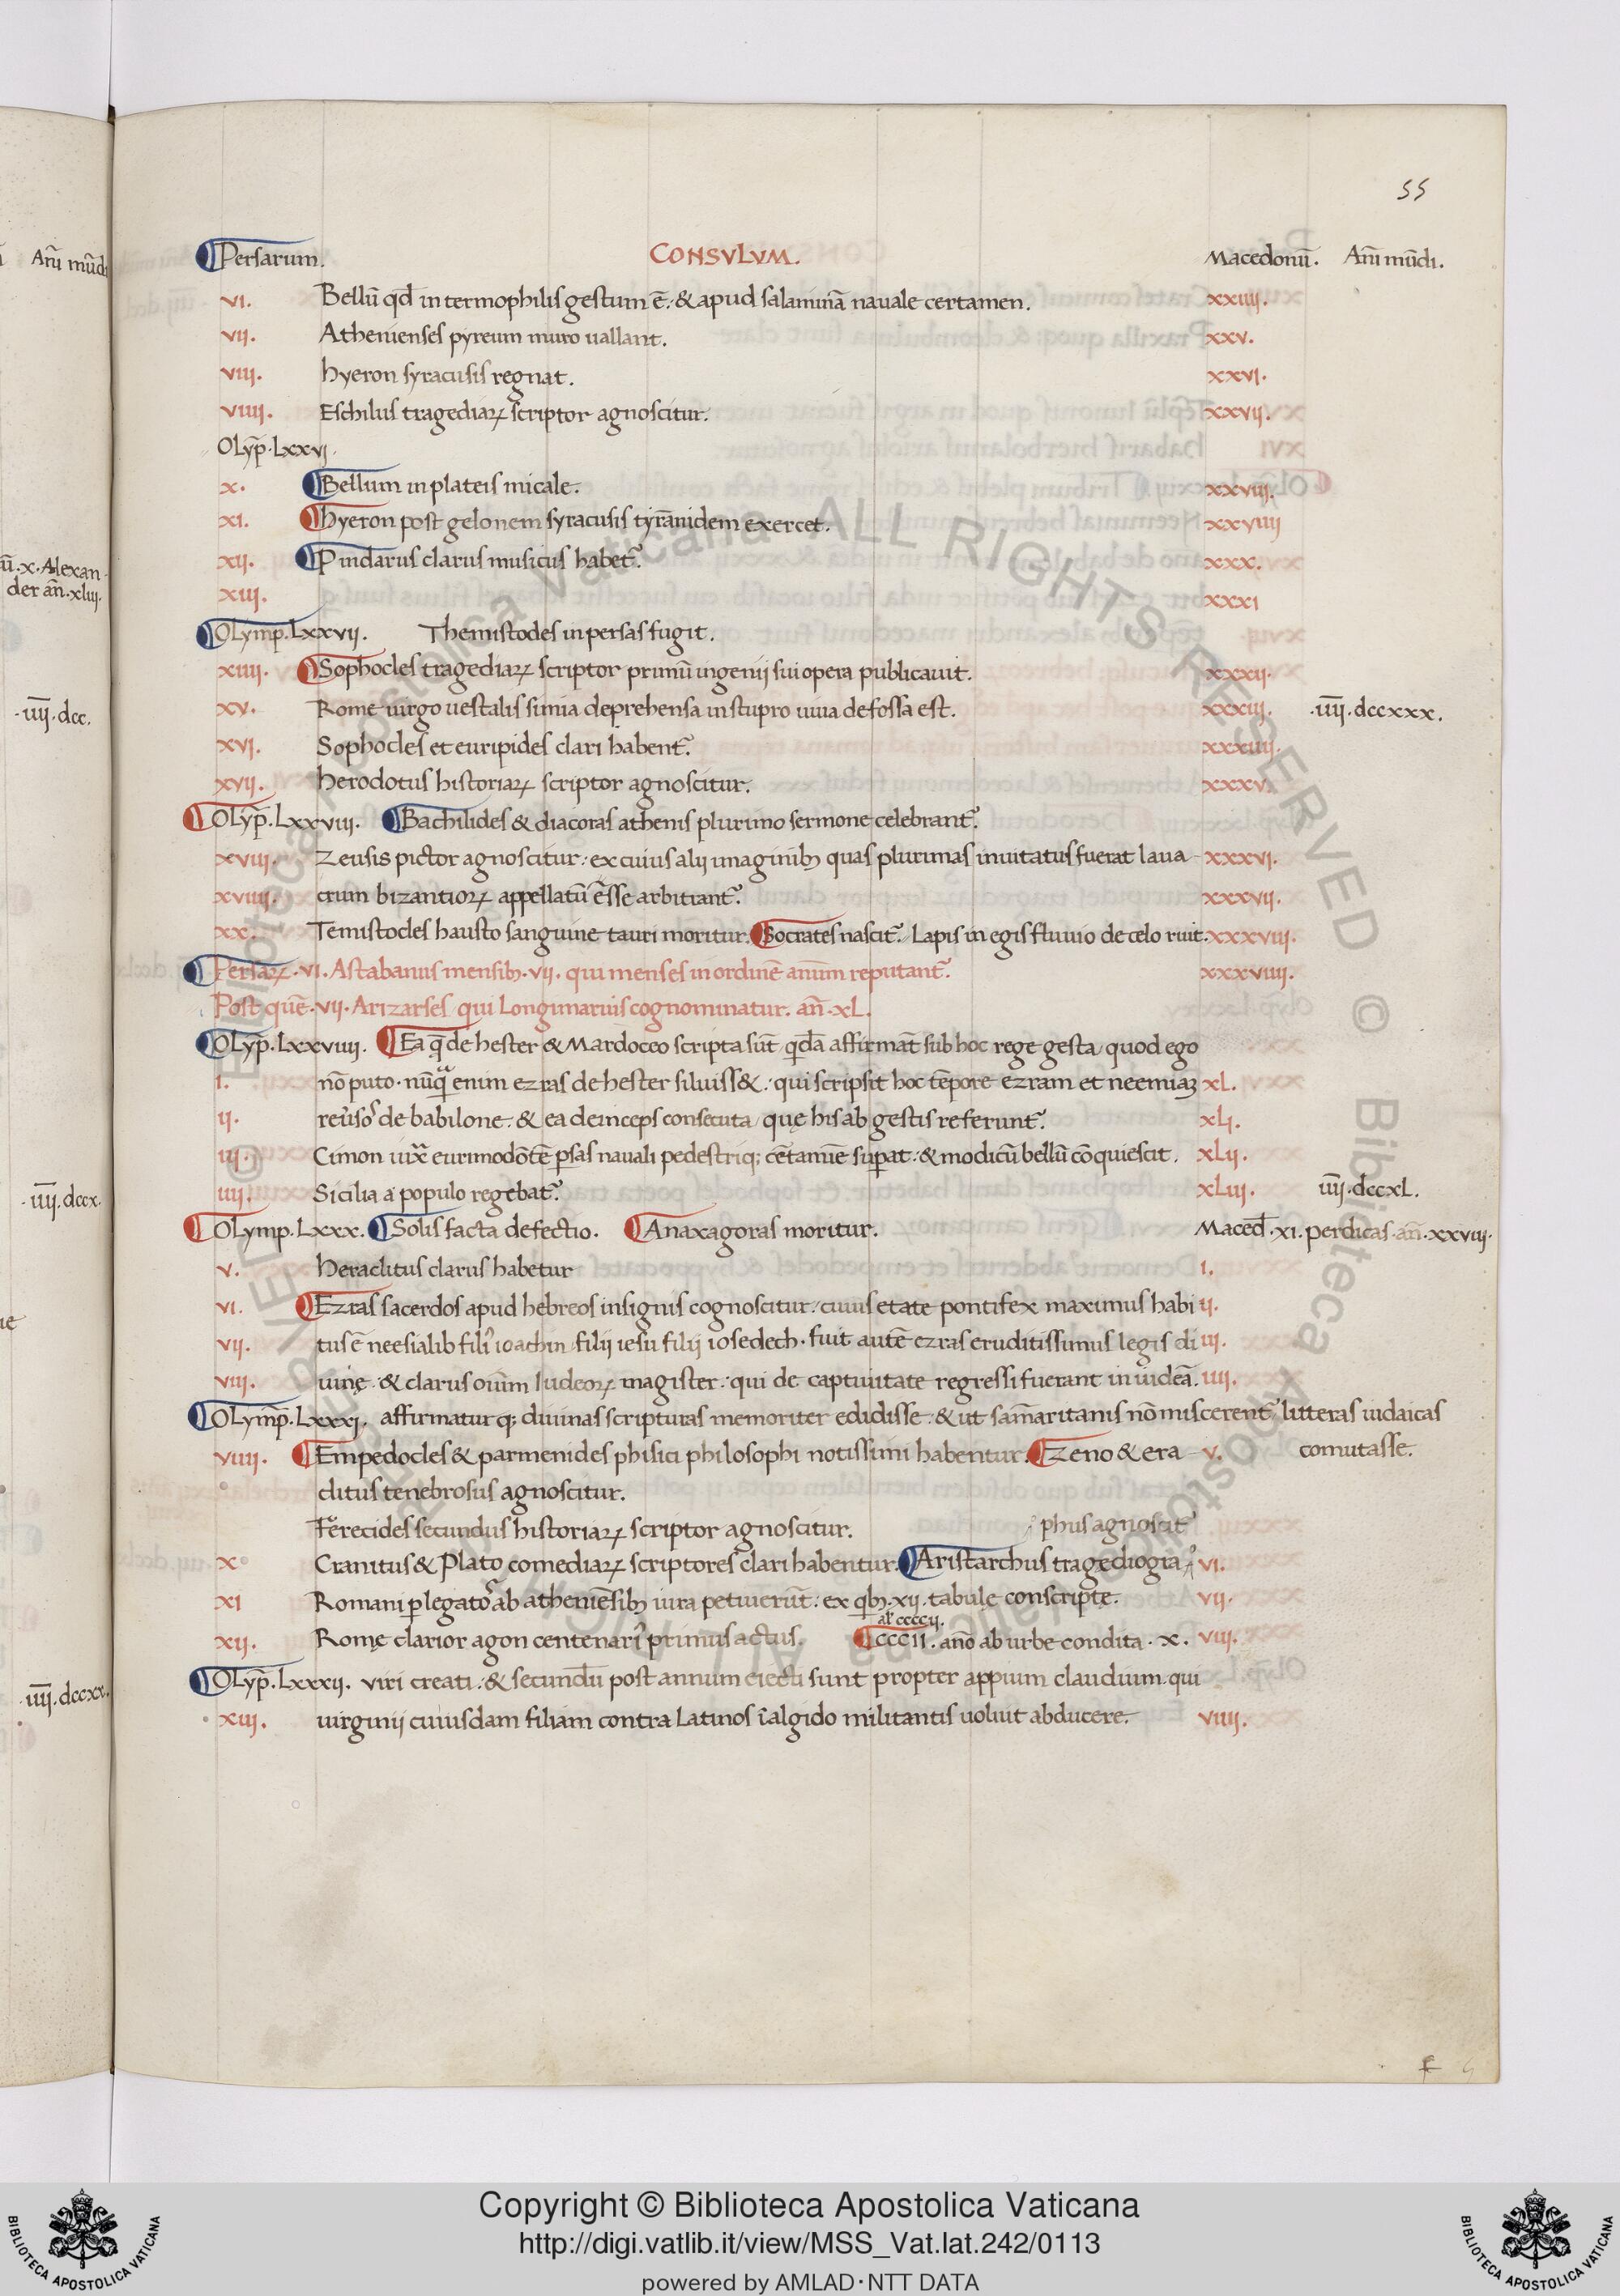 55
Persarum. CONSVLVM. Macedonũ. Añi mũdi.
vi. Bellũ qd̃ in termophilis gestum ẽ. & apud salaminã nauale certamen. xxiiii.
vii. Athenienses pyreum muro uallant. xxv.
viii. hyeron syracusis regnat. xxvi.
viiii. Eschilus tragediaꝝ scriptor agnoscitur. xxvii.
Olyp̃. Lxxvi.
x. Bellum in plateis micale. xxviii.
xi. hyeron post gelonem syracusis tyrãnidem exercet. xxviiii
xii. Pindarus clarus musicus habet̃. xxx.
xiii. xxxi
Olymp. Lxxvii. Themistodes in persas fugit.
xiiii. Sophocles tragediaꝝ scriptor primũ ingenij sui opera publicauit. xxxii.
xv. Rome uirgo uestalis sunia deprehensa in stupro uiua defossa est. xxxiii. .iiii̅.dccxxx.
xvi. Sophocles et euripides clari habent̃. xxxiiii.
xvii. herodotus historiaꝝ scriptor agnoscitur. xxxv.
Olyp̃. Lxxviii. Bachilides & diacoras athenis plurimo sermone celebrant̃.
xviii. Zeusis pictor agnoscitur: ex cuius alij imaginibꝫ quas plurimas inuitatus fuerat laua xxxvi.
xviiii. crum bizantioꝝ appellatũ ẽsse arbitrant̃. xxxvii.
xx. Temistocles hausto sanguine tauri moritur. Socrates nascit̃. Lapis in egis fluuio de celo ruit. xxxviii.
Persaꝝ .vi. Astabanus mensibꝫ .vii. qui menses in ordinẽ annum reputant̃. xxxviiii.
Post quẽ .vii. Arizarses qui Longimanus cognominatur. añ. xL.
Olyp̃. Lxxviiii. Ea q̃ de hester & Mardoceo scripta sũt qd̃a affirmãt sub hoc rege gesta quod ego
i. nõ puto. nũq̃ enim ezras de hester siluiss&. qui scripsit hoc tẽpore ezram et neemiaꝫ xL.
ii. reũsos de babilone. & ea deinceps consecuta que his ab gestis referunt̃. xLi.
iii. Cimon iuxa eurimodõtẽ p̱sas nauali pedestriq; cẽtamĩe sup̱at. & modicũ bellũ cõquiescit. xLii.
iiii. Sicilia a populo regebat̃. xLiii. iiii̅.dccxL.
Olymp. Lxxx. Solis facta defectio. Anaxagoras moritur. Maced̃. xi. perdicas. añ. xxviii.
v. heraclitus clarus habetur i.
vi. Ezras sacerdos apud hebreos insignis cognoscitur. cuius etate pontifex maximus habi ii.
vii. tus ẽ neesialib filiꝰ ioachin filij iesu filij iosedech. fuit autẽ ezras eruditissimus legis di iii.
viii. uinę. & clarus oium Iudeoꝝ magister. qui de captiuitate regressi fuerant in iudeã. iiii.
Olymp̃. Lxxxi. affirmatur q; diuinas scripturas memoriter edidisse. & ut sam̃aritanis nõ miscerent̃ litteras iudaicas
viiii. Empedocles & parmenides phisici philosophi notissimi habentur. Zeno & era v. comutasse.
clitus tenebrosus agnoscitur.
Ferecides secundus historiaꝝ scriptor agnoscitur. phus agnoscit̃
x Cranitus & Plato comediaꝝ scriptores clari habentur. Aristarchus tragediogra vi.
xi Romani p̱ legatos ab atheniẽsibꝫ iura petiuerũt. ex qibꝫ .xii. tabulę conscriptę. vii.
al̃ ccccii.
xii. Romę clarior agon centenariꝰ primus actus. cccii. año ab urbe condita. x. viii.
Olyp̃. Lxxxii. viri creati. & secundũ post annum eiecti sunt propter appium claudium. qui
xiii. uirginij cuiusdam filiam contra Latinos ĩ algido militantis uoluit abducere. viiii.
Añi mũdi
ũ.x.Alexan
der añ.xliii.
.iiii̅.dcc.
.iiii̅.dccx.
.iiii̅.dccxx.
ALL RIGHTS RESERVED © Biblioteca Apostolica Vaticana
Copyright © Biblioteca Apostolica Vaticana
http://digi.vatlib.it/view/MSS_Vat.lat.242/0113
powered by AMLAD·NTT DATA
BIBLIOTECA APOSTOLICA VATICANA
BIBLIOTECA APOSTOLICA VATICANA